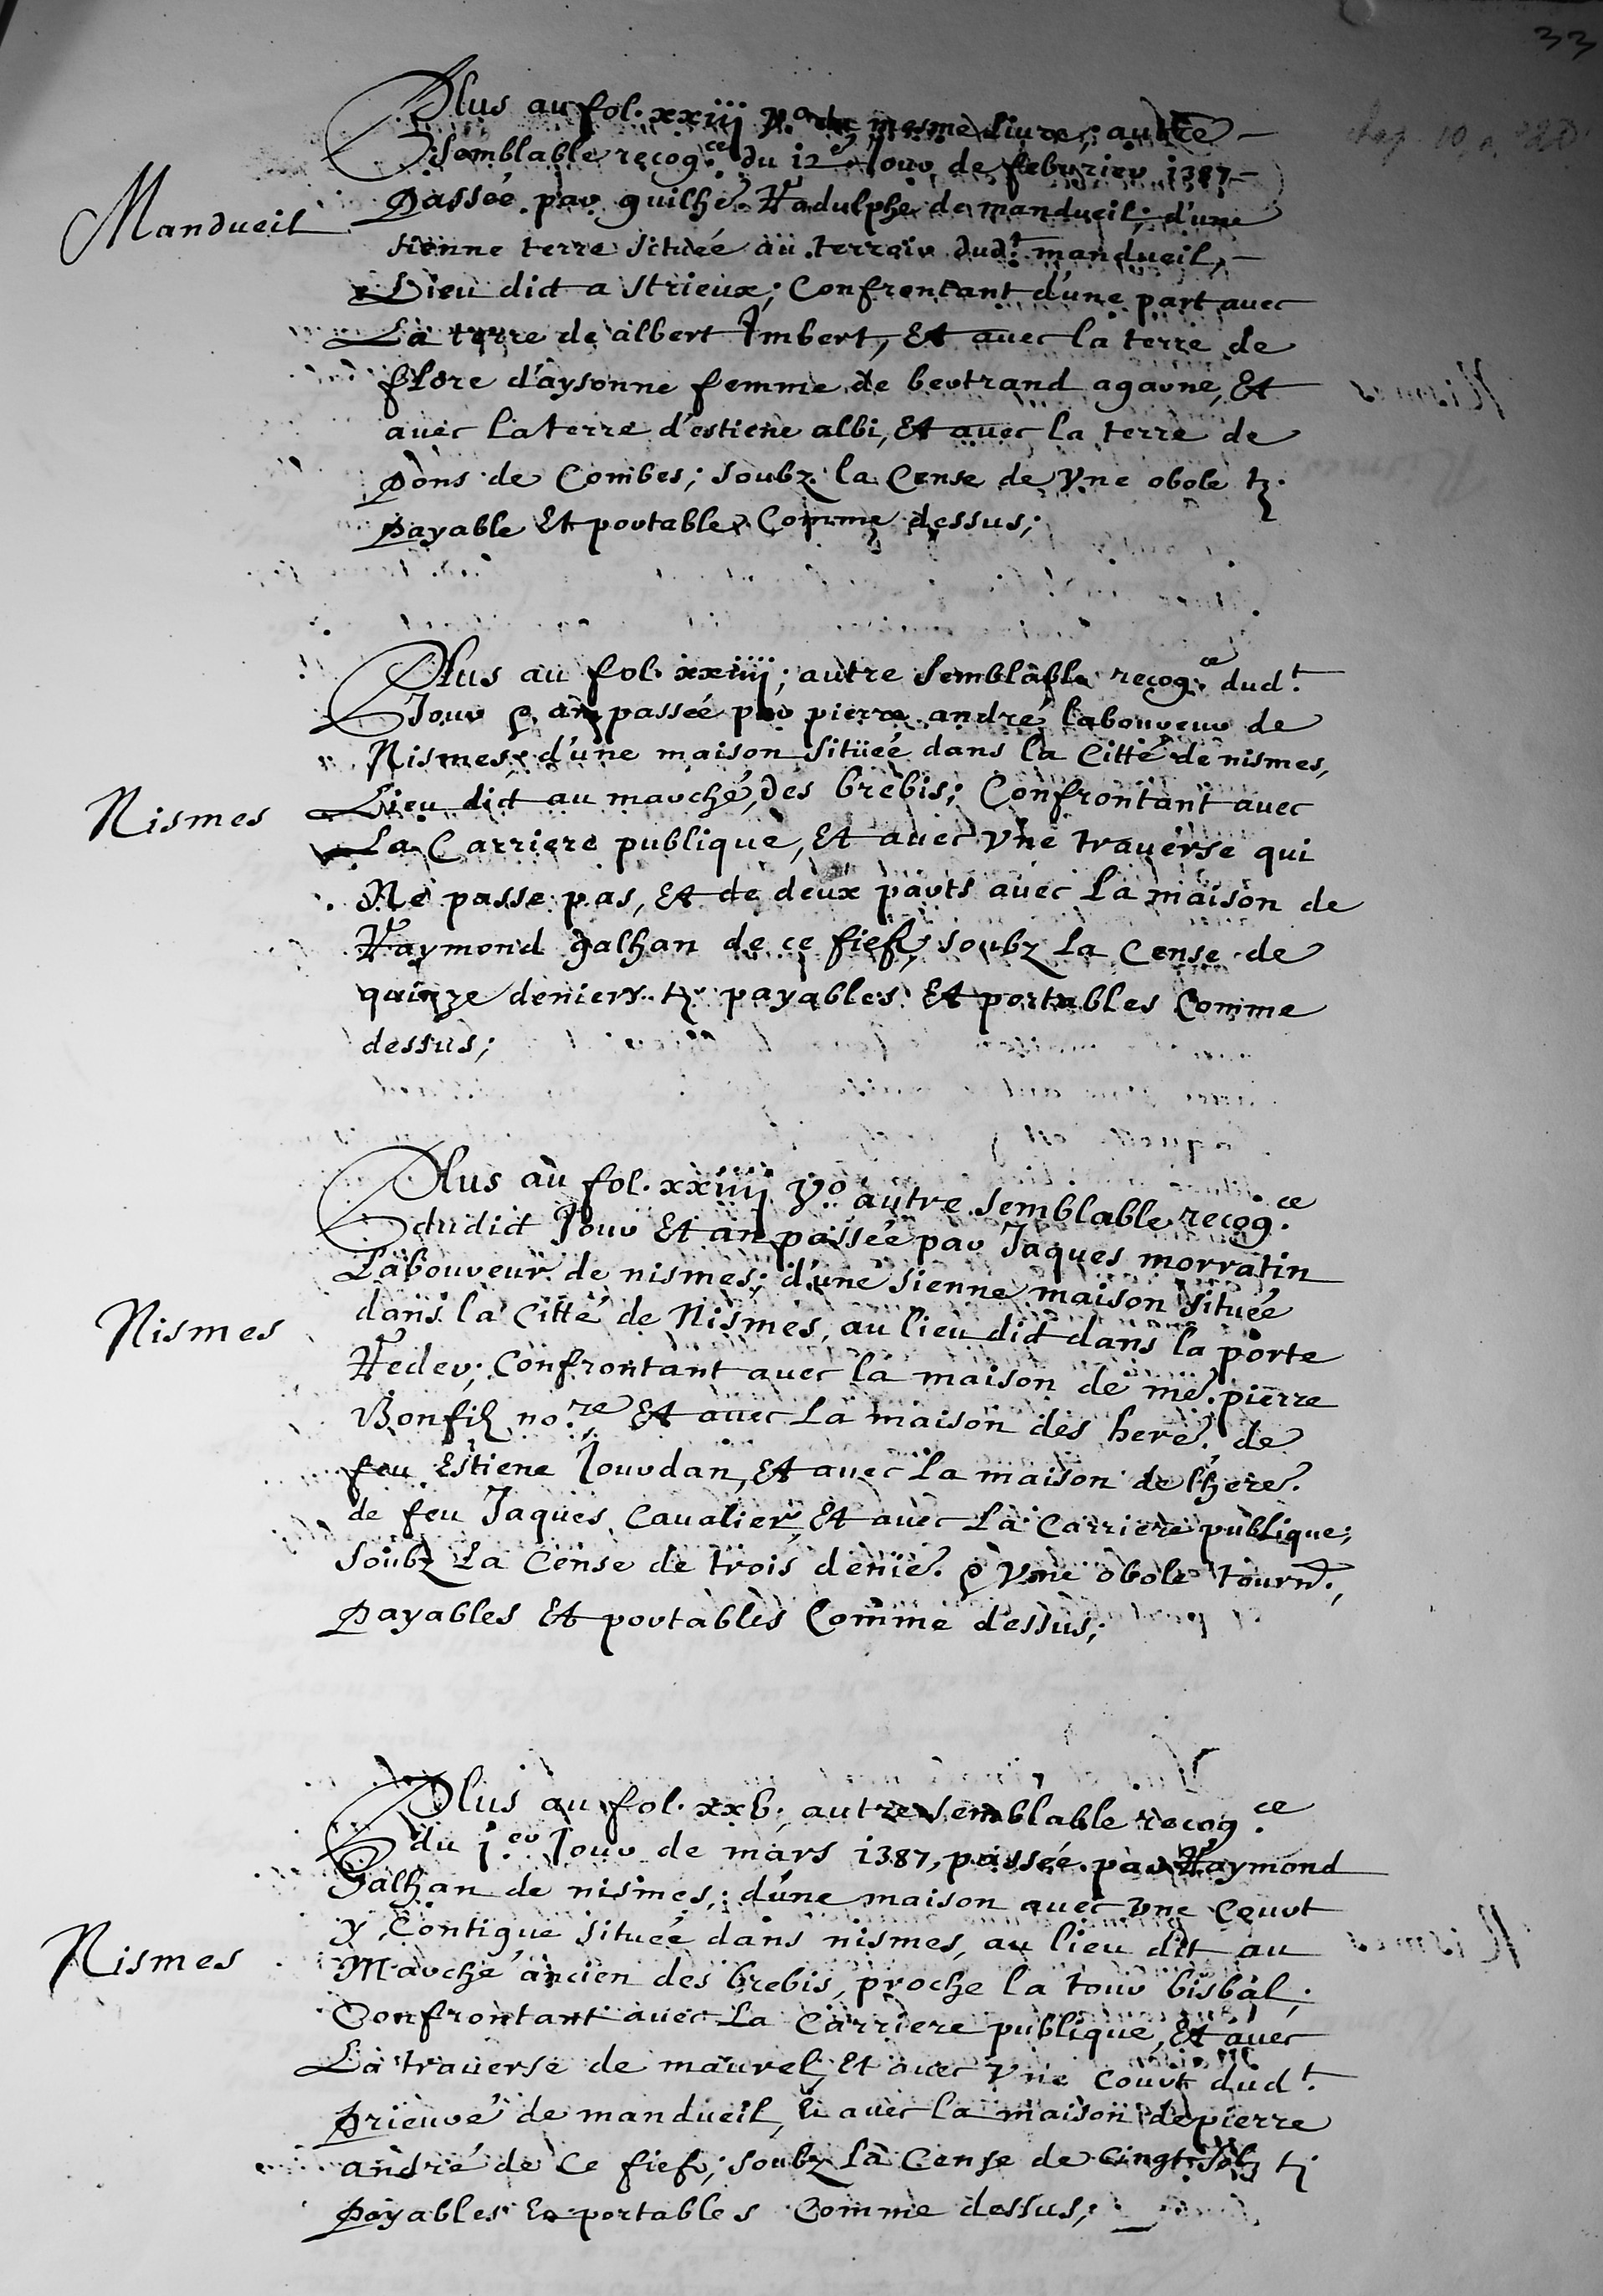 33
Plus au fol. xxiij v.º du mesme liure, autre
semblable recog.ce du 12.e Jour de feburier 1387
Mandueil
passée par guilhe. Radulphe de mandueil; d'une
sienne terre située au terroir dud.t mandueil,
Lieu dict a strieux; Confrontant d'une part auec
La terre de albert Imbert, Et auec la terre de
flore d'aysonne femme de bertrand agarne, Et
auec La terre d'estiene albi, Et auec la terre de
pons de Combes; soubz la Cense de Vne obole tz.
payable Et portable Comme dessus;
Plus au fol. xxiiij; autre semblable recog.ce dud.t
Jour & an passée par pierre andré laboureur de
Nismes; d'une maison située dans la Citté de nismes,
Nismes
Lieu dict au marché des brebis; Confrontant auec
La Carriere publique, Et auec Vne trauerse qui
Ne passe pas, Et de deux parts auec La maison de
Raymond galhan de ce fief; soubz La Cense de
quinze deniers tz. payables Et portables Comme
dessus;
Plus au fol. xxiiij V.º autre semblable recog.ce
dudict Jour Et an passée par Jaques morratin
Laboureur de nismes; d'une sienne maison située
Nismes
dans la Citté de Nismes, au lieu dict dans la porte
Reder; Confrontant auec la maison de me. pierre
Bonfilz no.re Et auec La maison des here. de
feu Estiene Jourdan, Et auec La maison de l'here.
de feu Jaques Caualier, Et auec La Carriere publique;
soubz La Cense de trois denie. & Vne obole tourn.,
payables Et portables Comme dessus;
Plus au fol. xxb; autre semblable recog.ce
du 1.er Jour de mars 1387, passée par Raymond
Galhan de nismes; d'une maison auec Vne Court
y Contigue située dans nismes, au lieu dit au
Nismes
Marché ancien des brebis, proche la tour bisbal;
Confrontant auec La Carriere publique, Et auec
La trauerse de maurel, Et auec Vne Court dud.t
prieuré de mandueil, & auec la maison de pierre
andré de Ce fief; soubz La Cense de Cingt solz tz
payables Et portables Comme dessus;